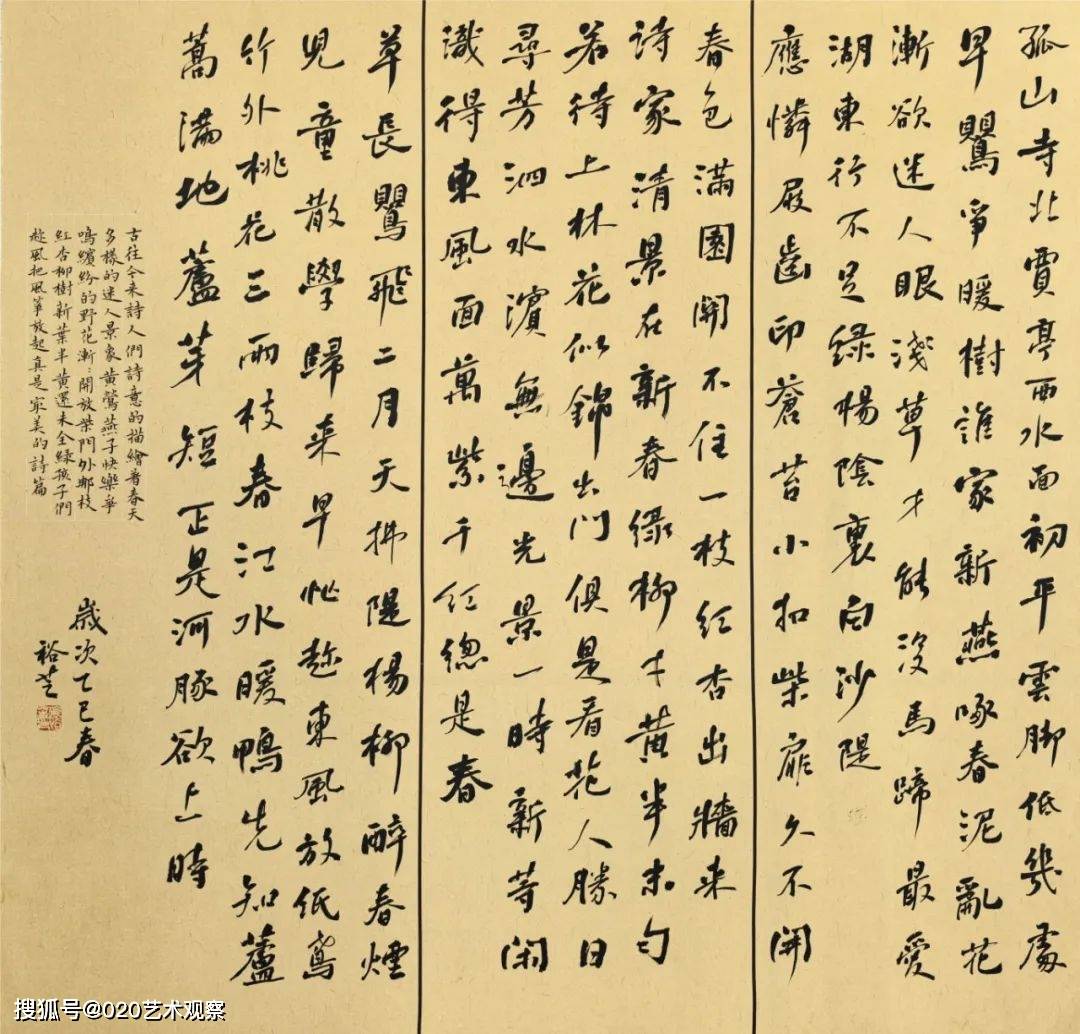 孤山寺北賈亭西水面初平雲腳低幾處
早鸎爭暖樹誰家新燕啄春泥亂花
漸欲迷人眼淺草才能沒馬蹄最愛
湖東行不足綠楊陰裏白沙隄
應憐屐齒印蒼苔小扣柴扉久不開
春色滿園關不住一枝紅杏出牆来
詩家清景在新春綠柳才黃半未勻
若待上林花似錦出門俱是看花人勝日
尋芳泗水濱無邊光景一時新等閑
識得東風面萬紫千紅總是春
草長鸎飛二月天拂隄楊柳醉春煙
兒童散學歸来早忙趁東風放紙鳶
竹外桃花三兩枝春江水暖鴨先知蘆
蒿滿地蘆芽短正是河豚欲上時
古往今来詩人們詩意的描繪著春天
多樣的迷人景象黃鶯燕子快樂爭
鳴繽紛的野花漸:開放柴門外那枝
紅杏柳樹新葉半黃還未全綠孩子們
趁風把風箏放起真是最美的詩篇
歲次乙巳春
裕芝
搜狐号@020艺术观察